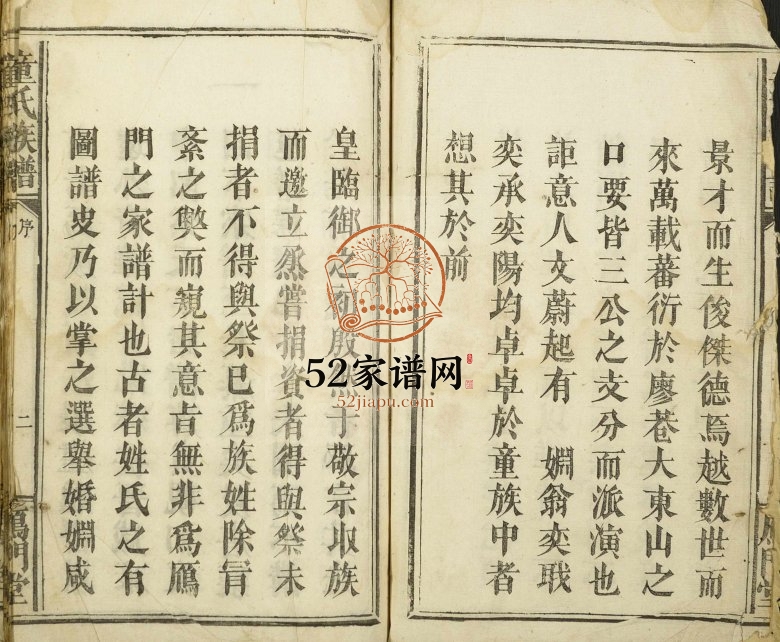 景才而生俊傑德焉越數世而
來萬載蕃衍於廖巷大東山之
口要皆三公之支分而派演也
詎意人文蔚起有　婣翁奕戩
奕承奕陽均卓卓於童族中者
想其於前
皇臨御之初殷
于敬宗收族
而邀立烝嘗捐資者得與祭未
捐者不得與祭已爲族姓除冐
紊之獘而窺其意旨無非爲鴈
門之家譜計也古者姓氏之有
圖譜史乃以掌之選舉婚婣咸
童氏族譜
序
二
鴈門堂
52家谱网
52jiapu.com